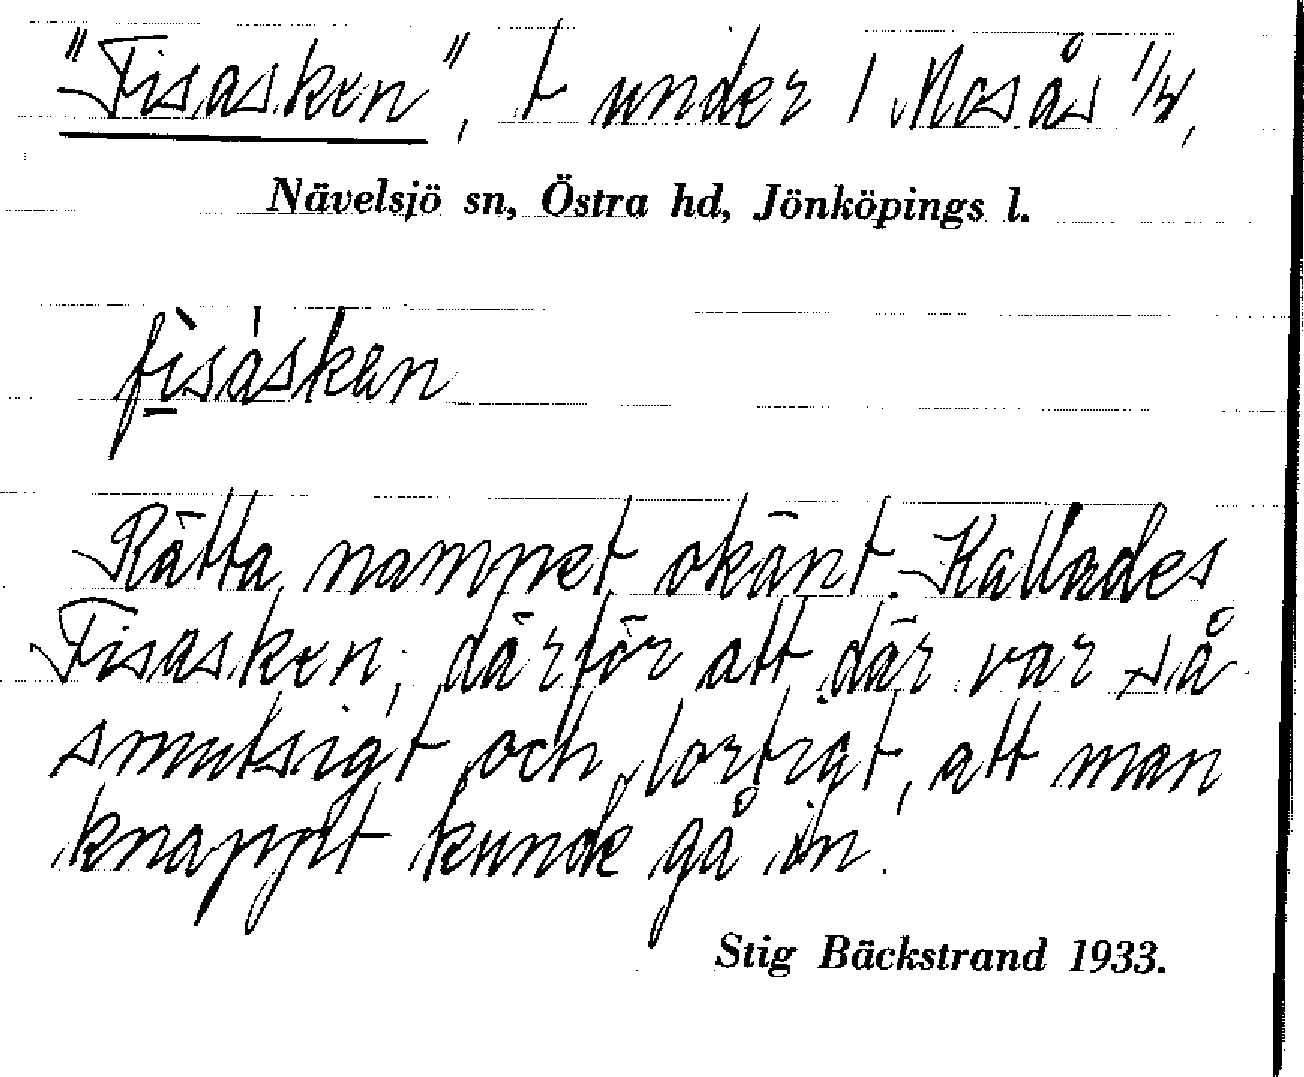 "Fisasken", t under 1 Mosås 1/4,
Nävelsjö sn, Östra hd, Jönköpings l.
fìsáskan
Rätta namnet okänt. Kallades
Fisasken, därför att där var så
smutsigt och lortigt, att man
knappt kunde gå in.
Stig Bäckstrand 1933.